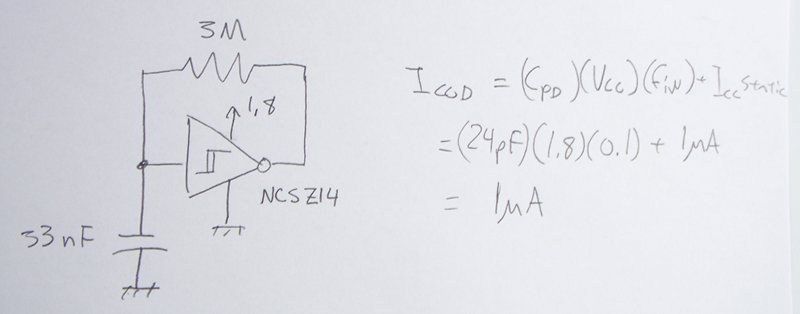 3M
1,8
NCSZ14
33nF
I CCD = (C PD)(Vcc)(fin) + Icc static
= (24pF)(1,8)(0.1) + 1μA
= 1μA